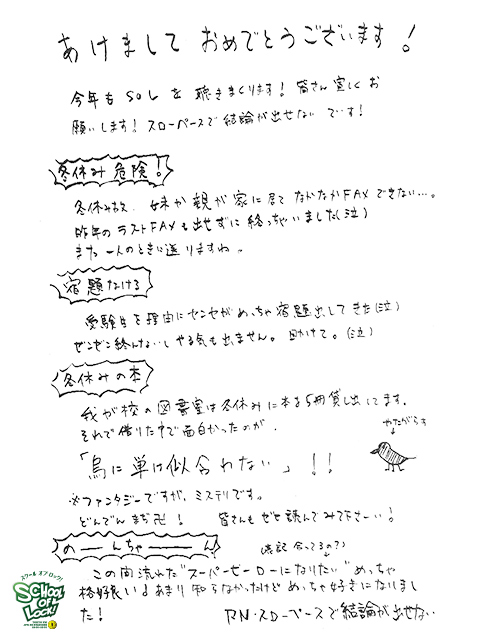 あけまして おめでとうございます!
今年も SOL を 聴きまくります! 皆さん宜しくお
願いします! スローペースで結論が出せない です!
冬休み危険!
冬休み故、妹か親が家に居て なかなかFAXできない…。
昨年のラストFAXも出せずに 終っちゃいました(泣)
また一人のときに送りますね。
宿題なげる
受験生を理由にセンセがめっちゃ宿題出してきた(泣)
ぜんぜん終んないしやる気も出ません。 助けて。(泣)
冬休みの本
我が校の図書室は冬休みに本を5冊貸し出してます。
それで借りた中で面白かったのが、
やたがらす
「烏に単は似合わない」!!
※ファンタジーですが、ミステリです。
どんでん まぢ卍! 皆さんもぜひ読んでみて下さーい!
のーんちゃーーん
(表記合ってるの?)
この間流れた"スーパーヒーローになりたい"めっちゃ
格好良い♪あまり知らなかったけどめっちゃ好きになりまし
た!
RN・スローペースで結論が出せない
スクール オブ ロック!
SCHOOL OF LOCK!